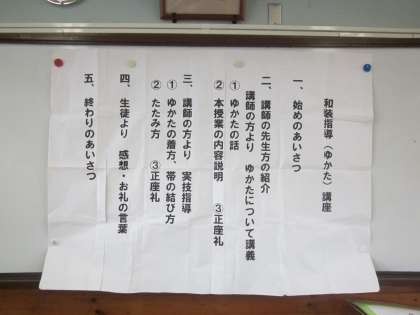 和装指導(ゆかた)講座
一、始めのあいさつ
二、講師の先生方の紹介
講師の方より ゆかたについて講義
① ゆかたの話
② 本授業の内容説明 ③正座礼
三、講師の方より 実技指導
① ゆかたの着方、帯の結び方
② たたみ方 ③正座礼
四、生徒より 感想・お礼の言葉
五、終わりのあいさつ